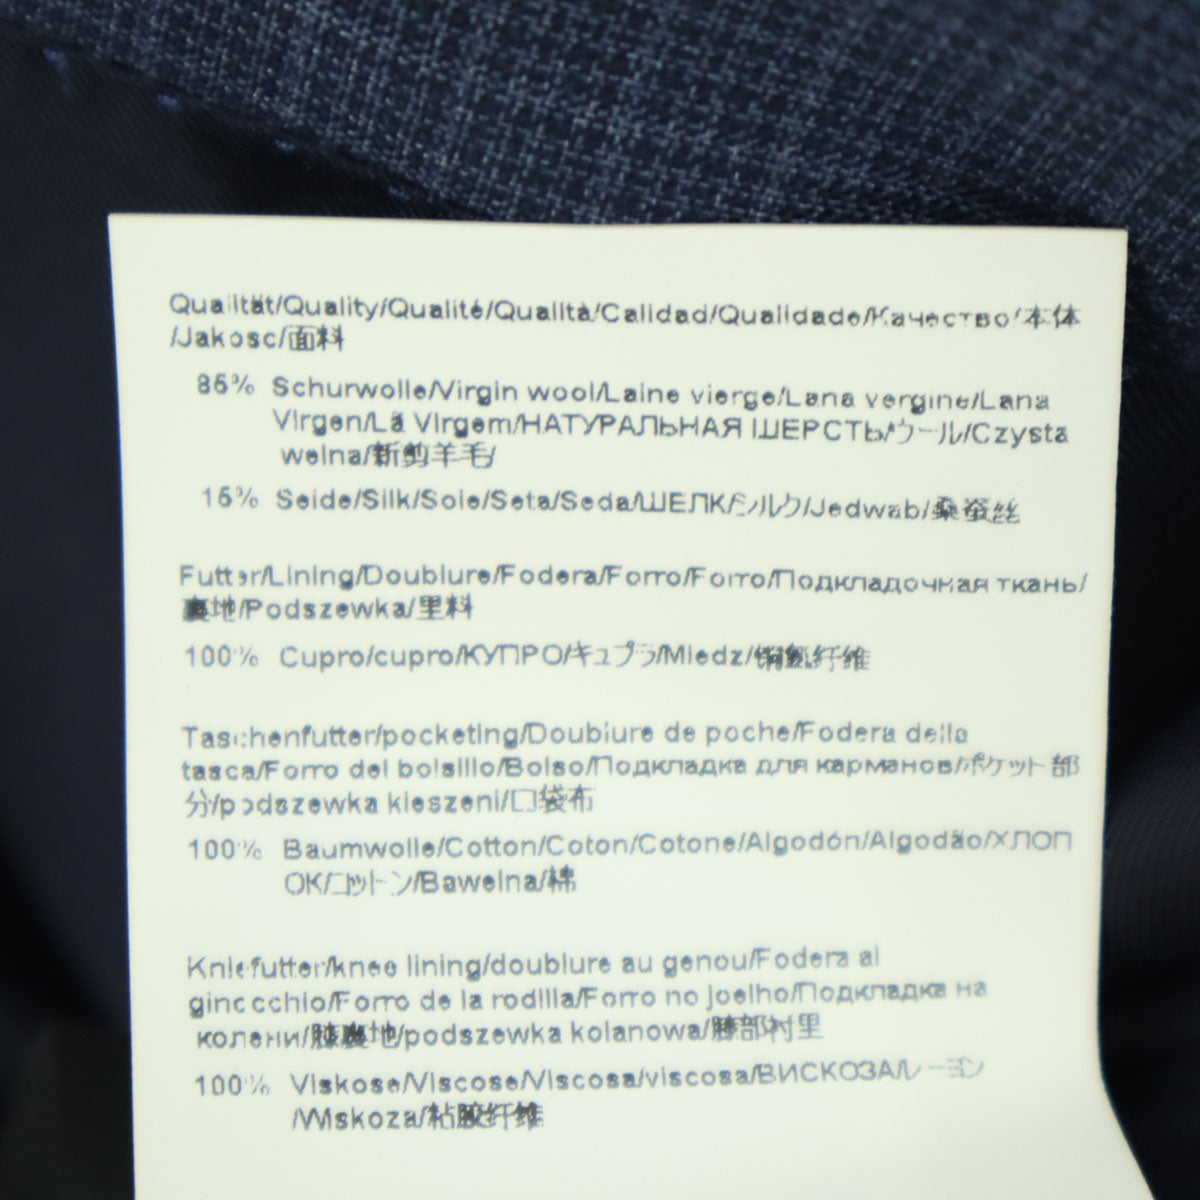 Qualität/Quality/Qualité/Qualità/Calidad/Qualidade/Качество/本体
/Jakosc/面料
85% Schurwolle/Virgin wool/Laine vierge/Lana vergine/Lana
Virgen/Lã Virgem/НАТУРАЛЬНАЯ ШЕРСТЬ/ウール/Czysta
welna/新剪羊毛/
15% Seide/Silk/Soie/Seta/Seda/ШЕЛК/シルク/Jedwab/桑蚕丝
Futter/Lining/Doublure/Fodera/Forro/Forro/Подкладочная ткань/
裏地/Podszewka/里料
100% Cupro/cupro/КУПРО/キュプラ/Miedz/铜氨纤维
Taschenfutter/pocketing/Doublure de poche/Fodera della
tasca/Forro del bolsillo/Bolso/Подкладка для карманов/ポケット部
分/podszewka kieszeni/口袋布
100% Baumwolle/Cotton/Coton/Cotone/Algodón/Algodão/ХЛОП
ОК/コットン/Bawelna/棉
Kniefutter/knee lining/doublure au genou/Fodera al
ginocchio/Forro de la rodilla/Forro no joelho/Подкладка на
колени/膝裏地/podszewka kolanowa/膝部衬里
100% Viskose/Viscose/Viscosa/viscosa/ВИСКОЗА/レーヨン
/Wiskoza/粘胶纤维